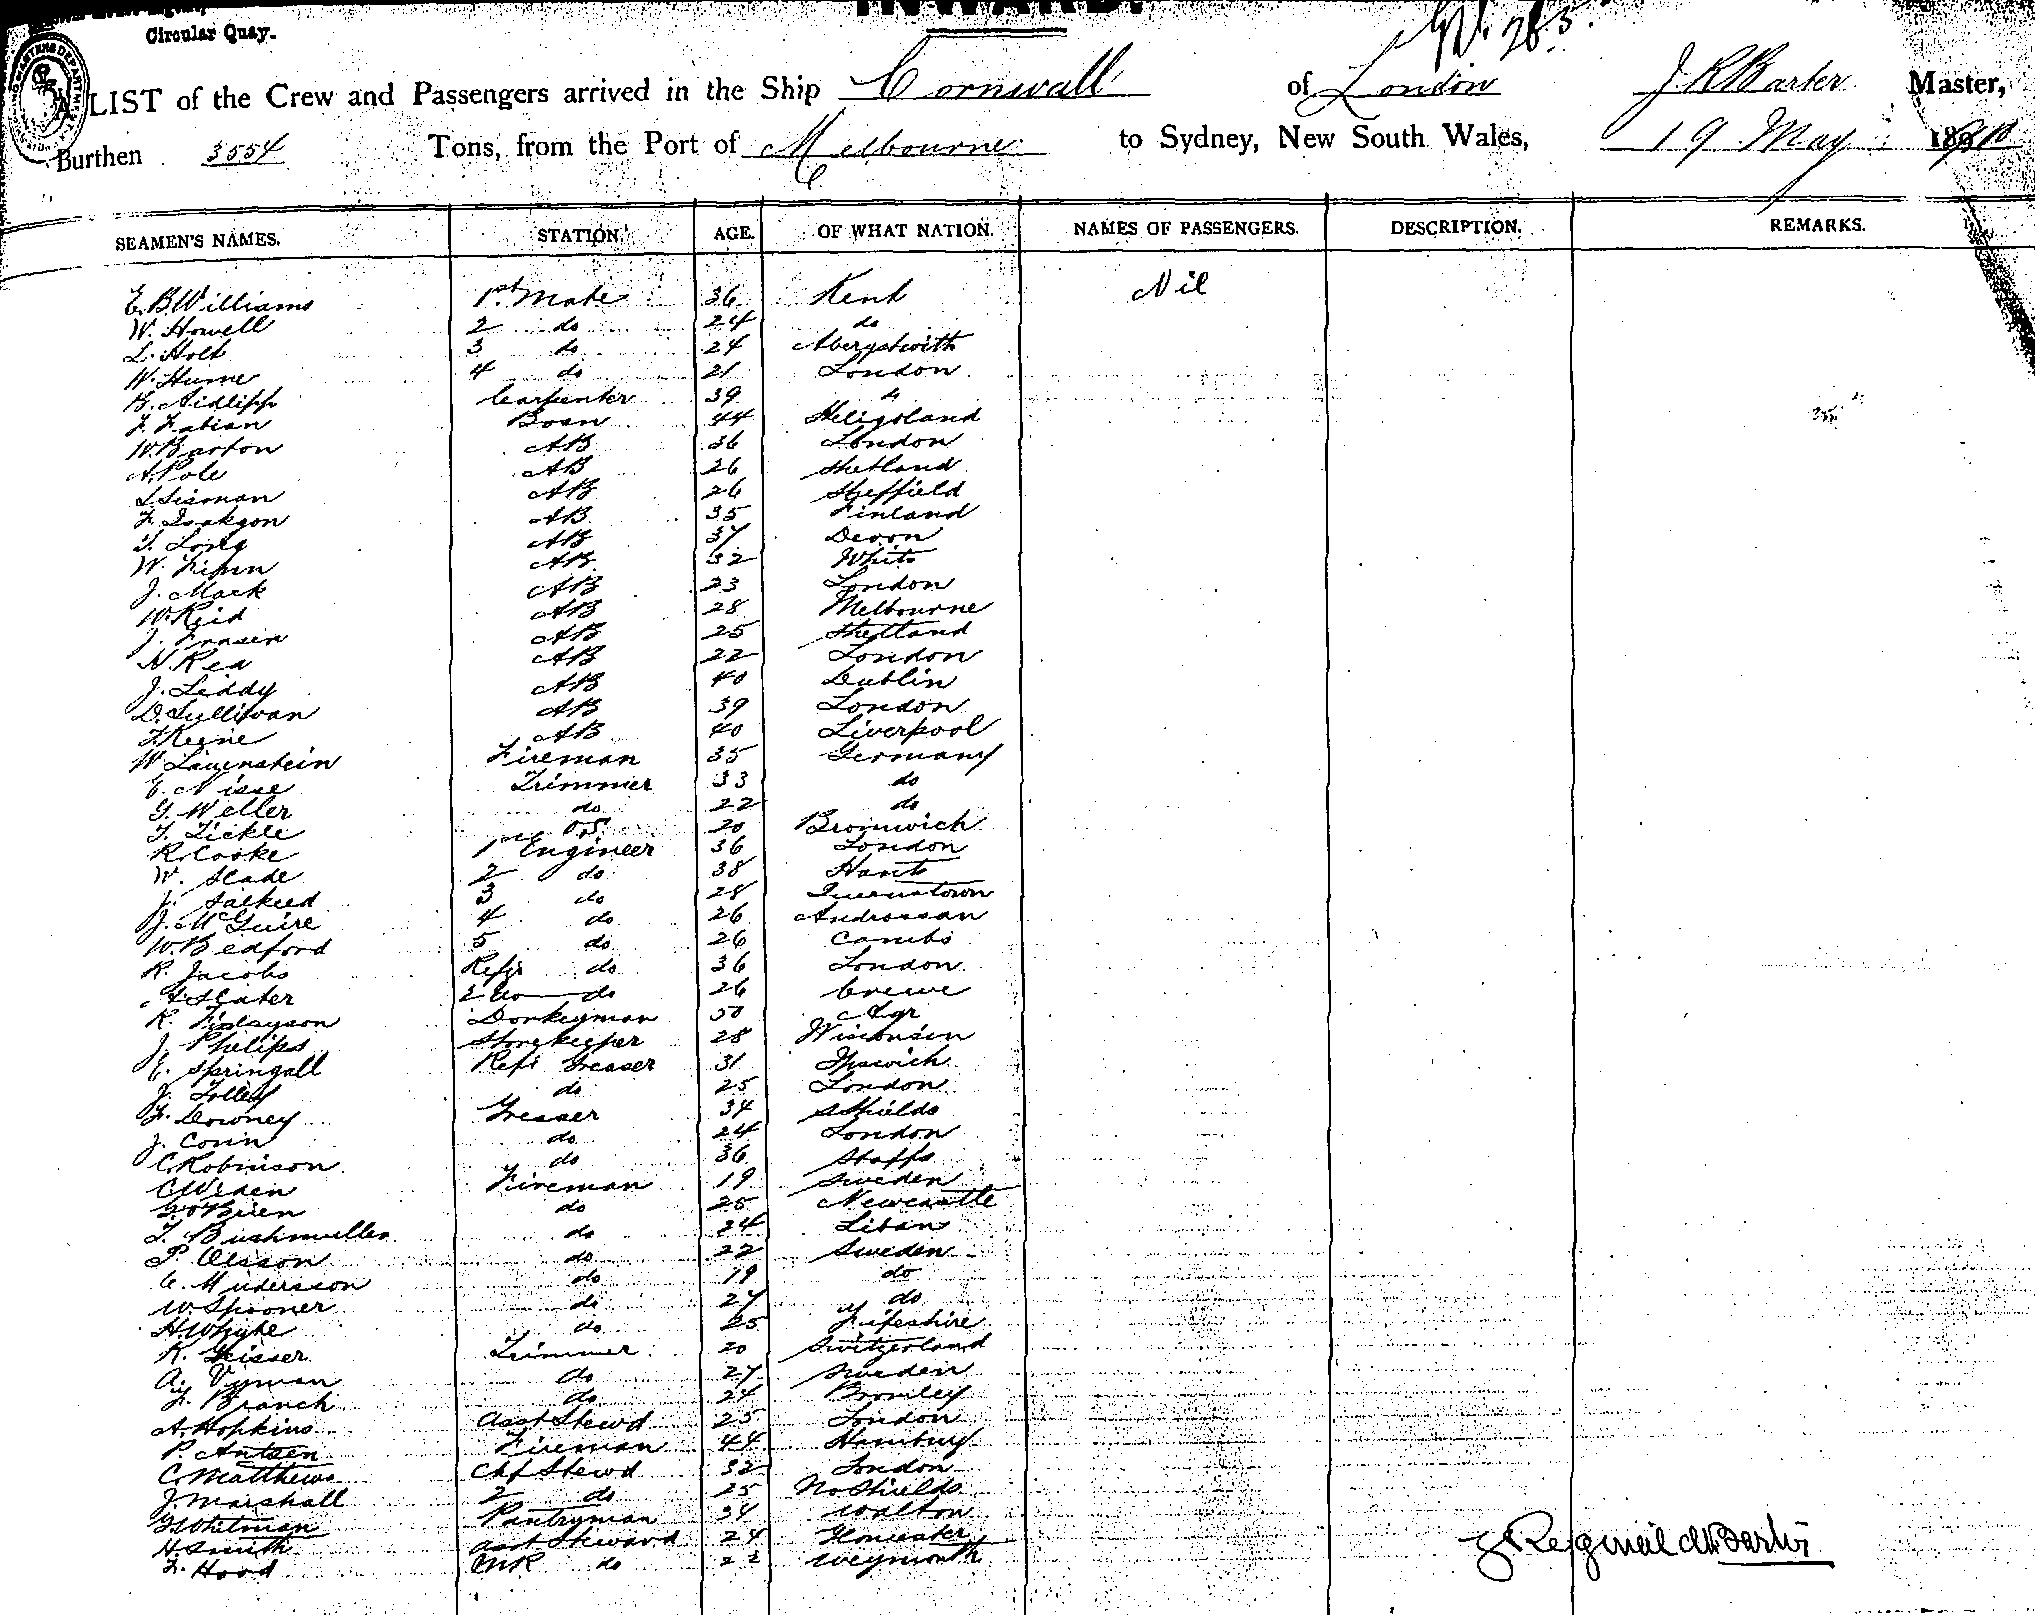 Circular Quay.
INWARD.
A LIST of the Crew and Passengers arrived in the Ship Cornwall of London J. R Barter Master,
Burthen 3554 Tons, from the Port of Melbourne to Sydney, New South Wales, 19 May 1900
SEAMEN'S NAMES. STATION. AGE. OF WHAT NATION. NAMES OF PASSENGERS. DESCRIPTION. REMARKS.
E. B Williams 1st Mate 36 Kent Nil
W. Howell 2 do 24 do
L. Holt 3 do 24 Aberystwith
W. Hume 4 do 21 London
B. Aidlipp Carpenter 39 do
F. Fabian Bosn 44 Heligoland
W. Barton AB 36 London
A. Pole AB 26 Shetland
S. Sisman AB 26 Sheffield
F. Isakson AB 35 Finland
T. Long AB 37 Devon
W. AB 32 Whits
J. Mack AB 23 London
W. Reid AB 28 Melbourne
J. Fraser AB 25 Shetland
N. Rea AB 22 London
J. Liddy AB 40 Dublin
D. Sullivan AB 39 London
F. Keene AB 40 Liverpool
W Lauenstein Fireman 35 Germany
E. Nisse Trimmer 33 do
G. Weller do 22 do
T. Tickle OS 20 Bromwich
R. Cooke 1st Engineer 36 London
W. Slade 2 do 38 Hants
J. Salkeld 3 do 28 Queenstown
J. McGuire 4 do 26 Androssan
W. Bedford 5 do 26 Cambs
R. Jacobs Refr do 36 London
A. Slater 2 do do 26 Crewe
R. Finlayson Donkeyman 50 Ayr
J. Philips Storekeeper 28 Wisconsin
E. Springall Refr Greaser 31 Ipswich
J. Tolley do 25 London
F. Downey Greaser 34 S Shields
J. Conin do 24 London
C. Robinson do 36 Staffs
C. Widen Fireman 19 Sweden
G. O'Brien do 25 Newcastle
T. Bushmuller do 24 Libau
P. Olsson do 22 Sweden
C. do 19 do
W. Spooner do 27 do
H. Whyte do 25 Fifeshire
K. Geisser Trimmer 20 Switzerland
A. Vyman do 27 Sweden
F. Branch do 24 Bromley
A. Hopkins Asst Stewd 25 London
P. Antsen Fireman 44 Hamburg
C. Matthews Chf Stewd 32 London
J. Marshall 2 do 25 No Shields
G. Whitman Pantryman 34 Walton
H. Smith Asst Steward 24 Gloucester
F. Hood MR do 22 Weymouth
J Reginald Barter